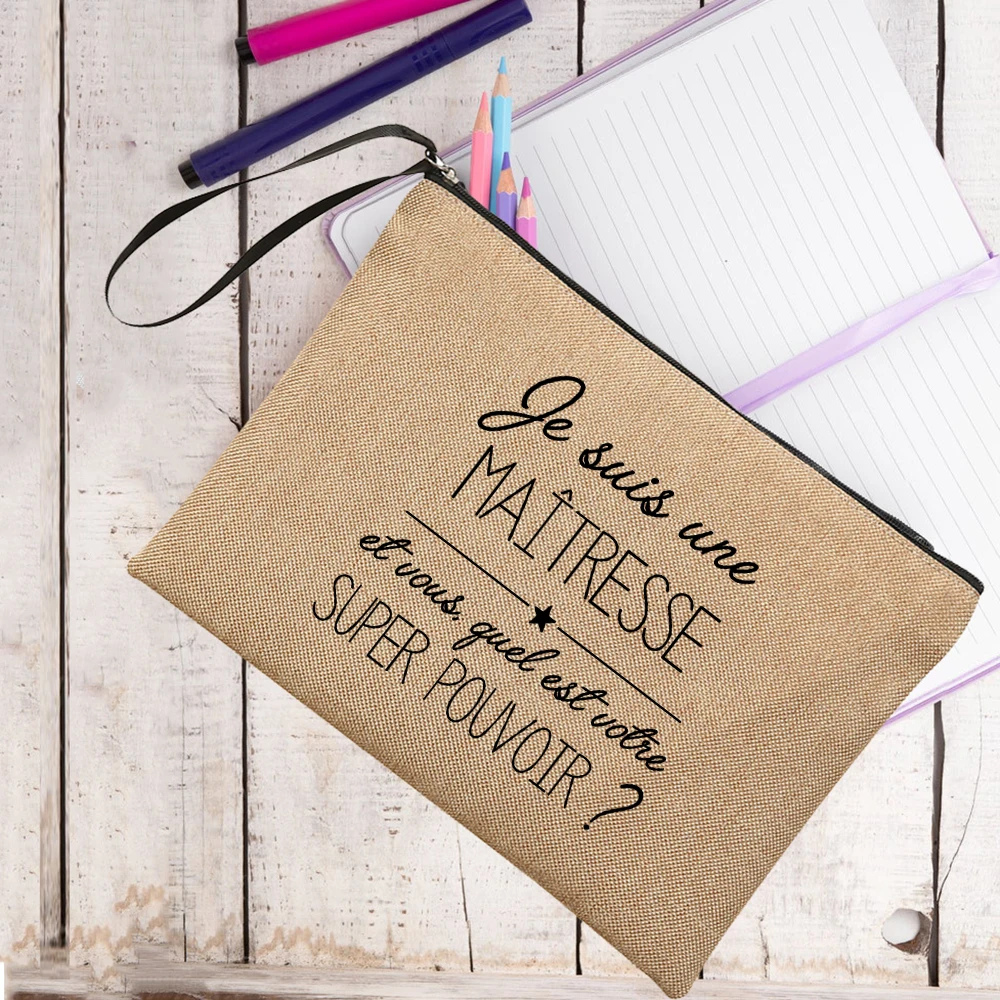 Je suis une
MAÎTRESSE
et vous, quel est votre
SUPER POUVOIR ?